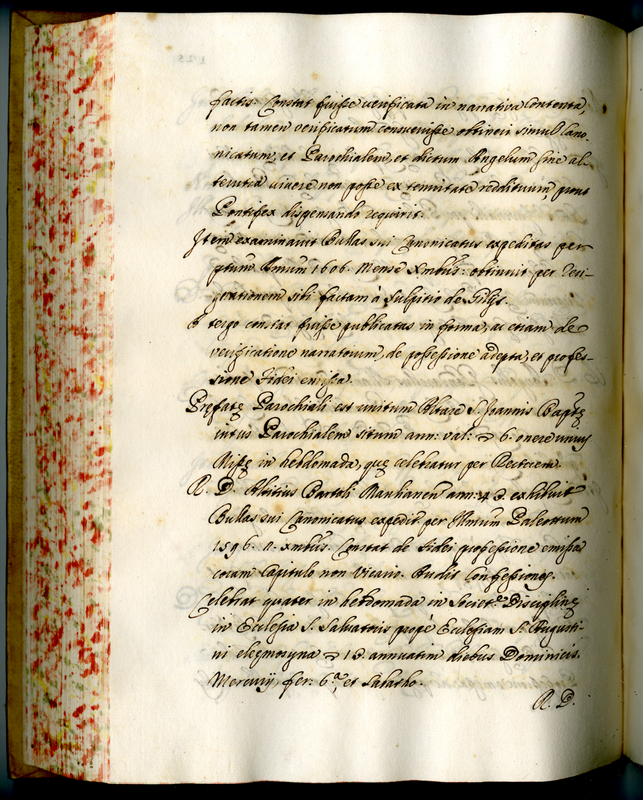 factis. Constat fuisse verificata in narrativa contenta,
non tamen verificatum consuevisse obtineri simul Cano-
nicatum, et Parochialem, et dictum Angelum sine al-
terutia vivere non posse ex tenuitate reddituum, prout
Pontifex dispensando requirit.
Item examinavit Bullas sui Canonicatus expeditas per
Annum 1606. Mense Xmbris: obtinuit per
factam à Sulpitio de Gilijs.
A tergo constat fuisse publicatas in forma, ac etiam de
verificatione narratorum, de possessione adepta, et profes-
sione Fidei emissa.
Præfatę Parochiali est unitum Altare S. Joannis Baptę
intus Parochialem situm ann: val: 6. onere unius
Missę in hebdomada, quę celebratur per Rectorem.
R. D. Bartoli ann: exhibuit
Bullas sui Canonicatus expedit. per Paleottum
1596. Xmbris. Constat de Fidei professione emissa
coram Capitulo non Vicario. Audit Confessiones.
Celebrat quater in hebdomada in Societ.e Disciplinę
in Ecclesia S. Salvatoris propè Ecclesiam S. Augusti-
ni elęmosyna 12 annuatim diebus Dominicis.
Mercurij, fer: 6.a, et Sabatho.
R. D.